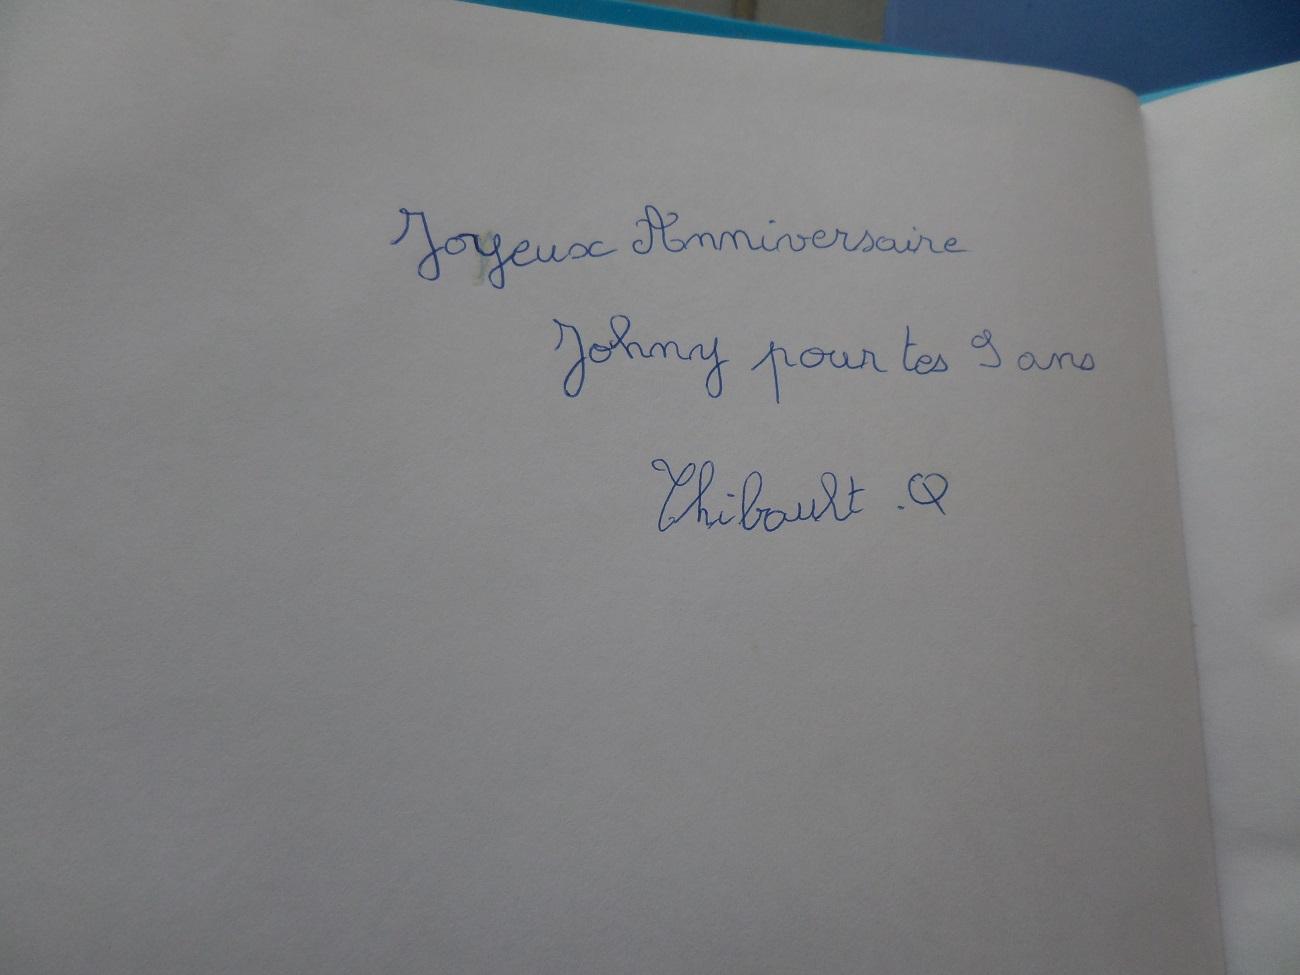 Joyeux Anniversaire
Johny pour tes 9 ans
Thibault .Q